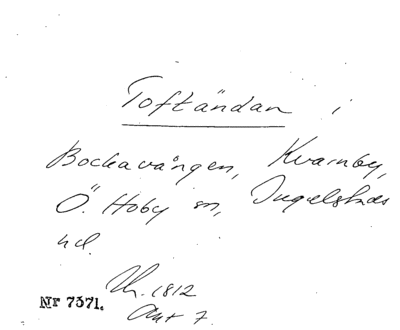 Toftändan i
Bockavången, Kvarnby,
Ö. Hoby sn, Ingelstads
hd.
Uh. 1812
Akt 7.
Nr 7371.